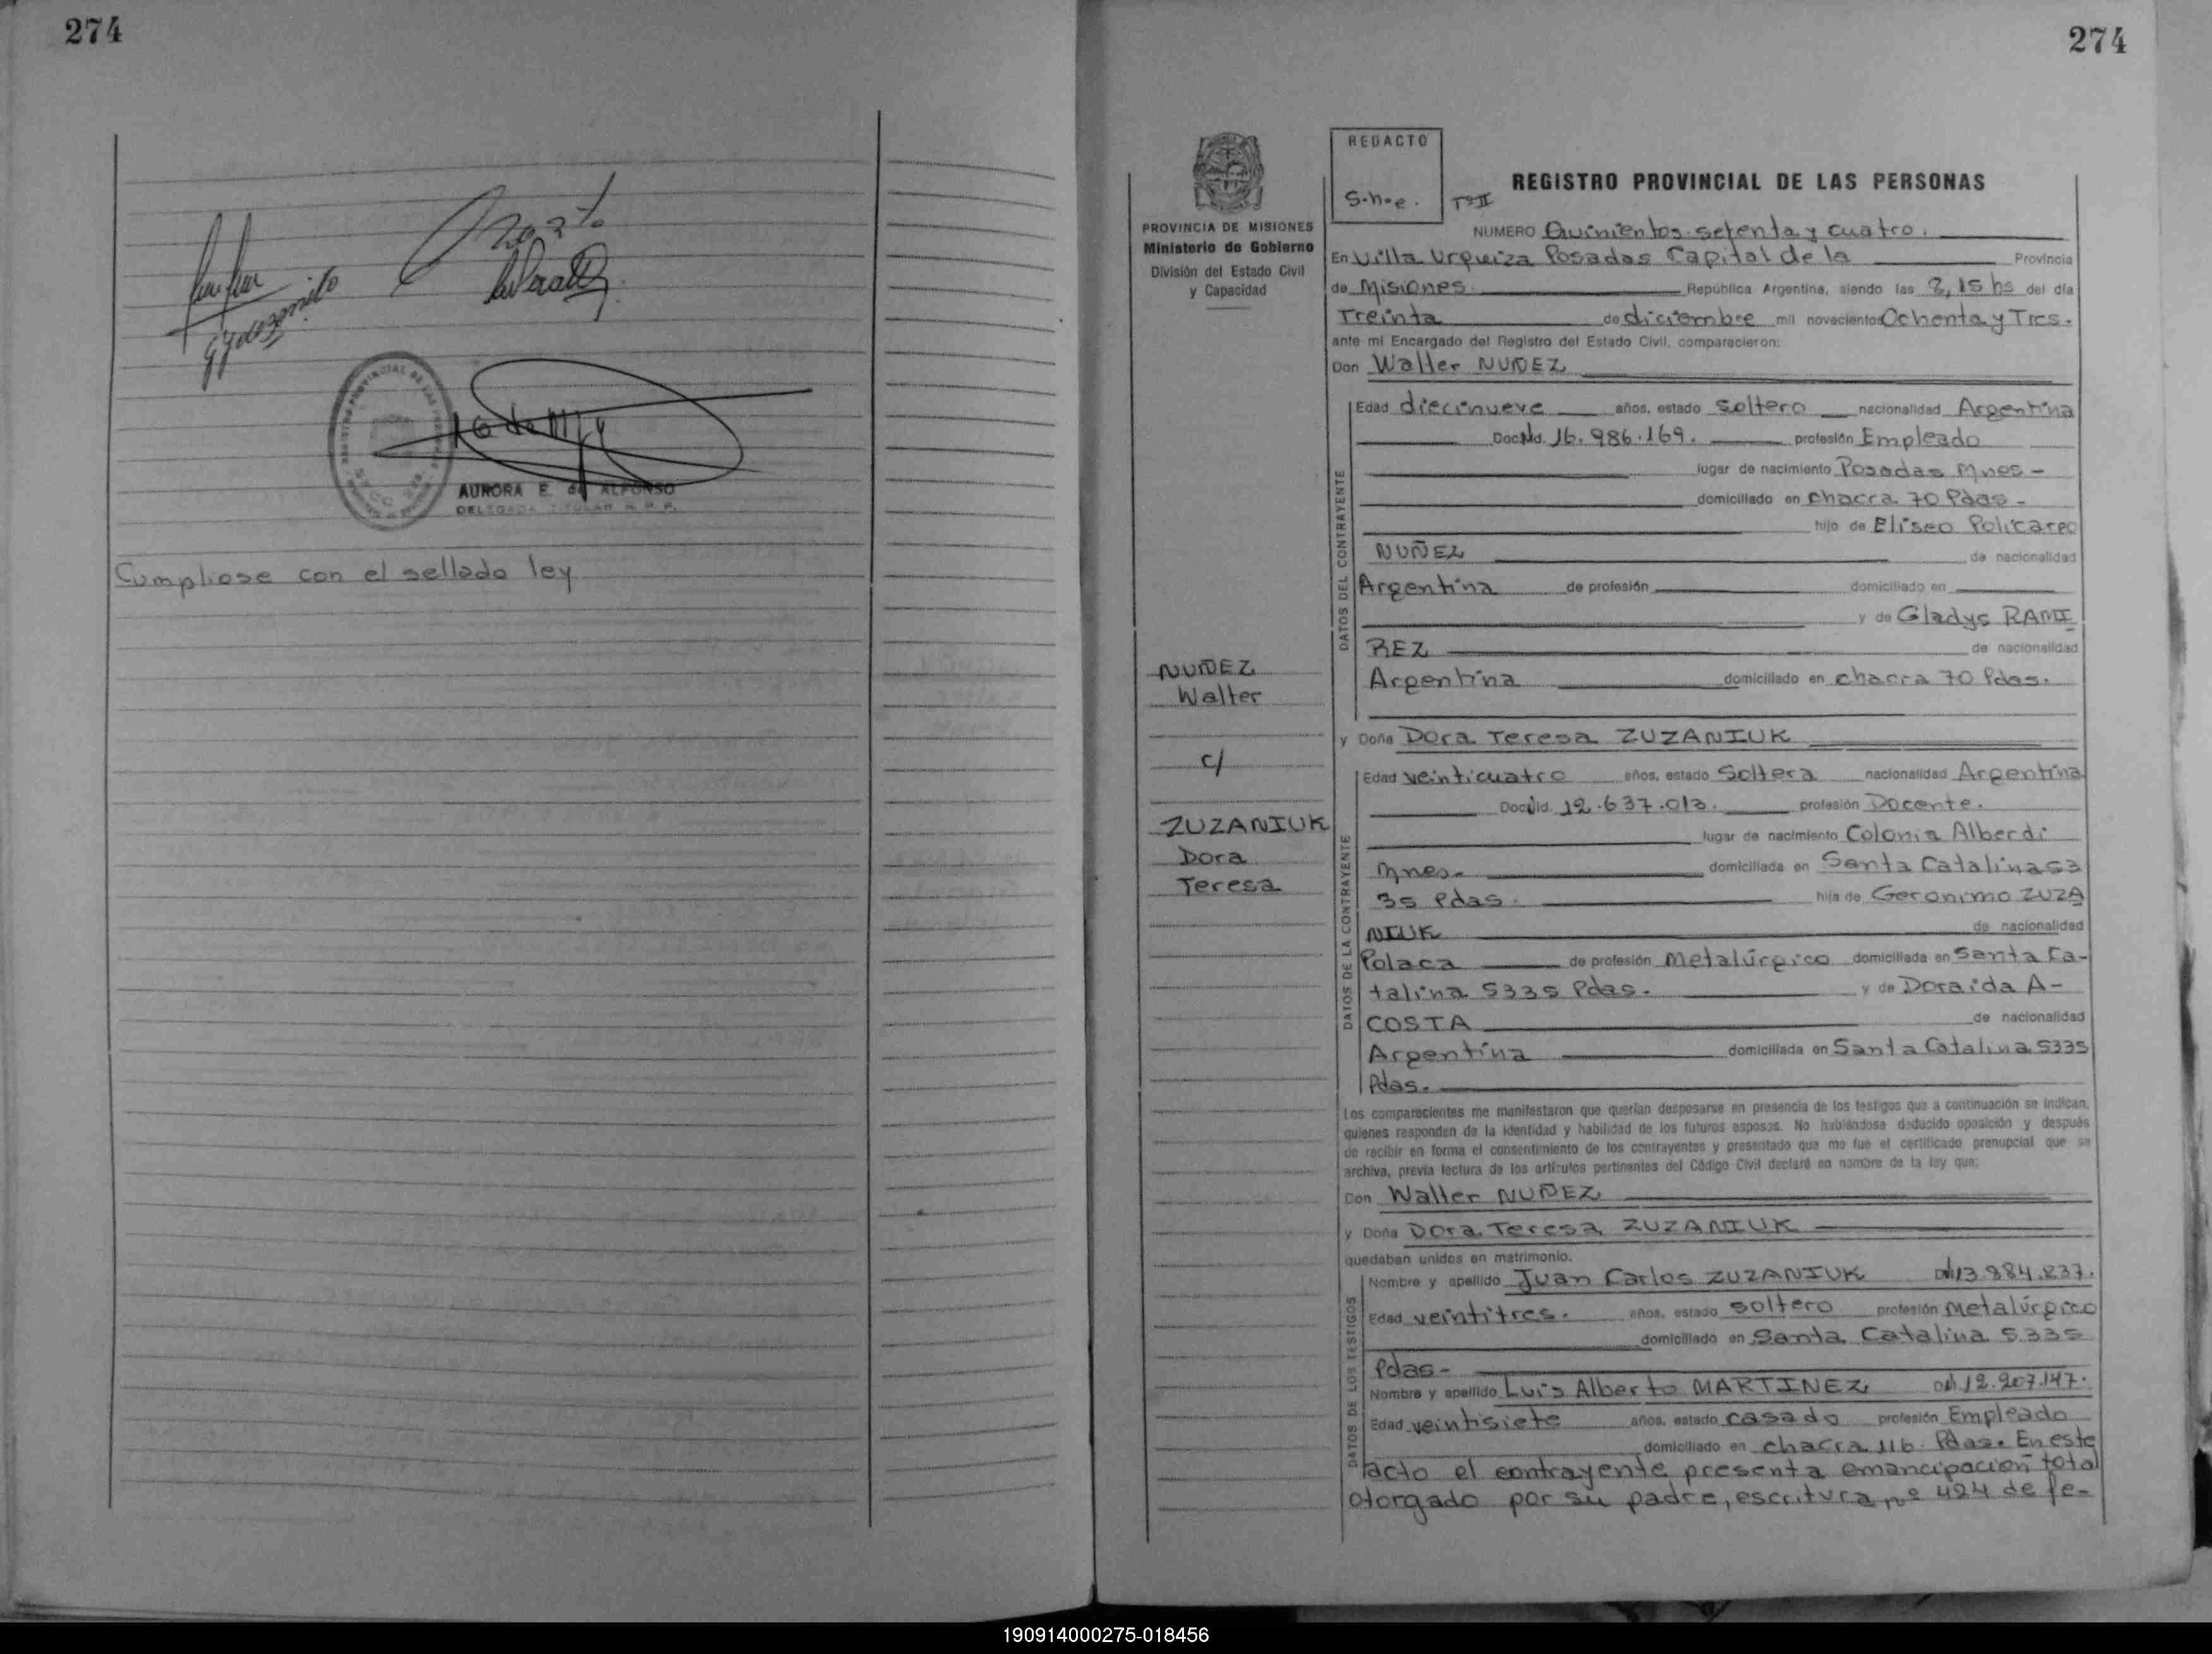 274
AURORA E. de ALFONSO
DELEGADA TITULAR R. P. P.
Cumpliose con el sellado ley
274
PROVINCIA DE MISIONES
Ministerio de Gobierno
División del Estado Civil
y Capacidad
NUÑEZ
Walter
c/
ZUZANIUK
Dora
Teresa
REDACTO
S.n.e.
Tº II
REGISTRO PROVINCIAL DE LAS PERSONAS
NUMERO Quinientos setenta y cuatro.
En Villa Urquiza Posadas Capital de la Provincia
de Misiones. República Argentina, siendo las 8,15 hs del día
Treinta de diciembre mil novecientos Ochenta y Tres.
ante mi Encargado del Registro del Estado Civil, comparecieron:
Don Walter NUÑEZ
DATOS DEL CONTRAYENTE
Edad diecinueve años, estado soltero nacionalidad Argentina
Doc. Nd. 16.986.169. profesión Empleado
lugar de nacimiento Posadas Mnes-
domiciliado en chacra 70 Pdas-
hijo de Eliseo Policarpo
NUÑEZ de nacionalidad
Argentina de profesión domiciliado en
y de Gladys RAMI
REZ de nacionalidad
Argentina domiciliado en chacra 70 Pdas.
y Doña Dora Teresa ZUZANIUK
DATOS DE LA CONTRAYENTE
Edad veinticuatro años, estado Soltera nacionalidad Argentina
Doc. Nd. 12.637.013. profesión Docente.
lugar de nacimiento Colonia Alberdi
Mnes- domiciliada en Santa Catalina 53
35 Pdas. hija de Geronimo ZUZA
NIUK de nacionalidad
Polaca de profesión Metalúrgico domiciliada en Santa Ca-
talina 5335 Pdas. y de Doraida A-
COSTA de nacionalidad
Argentina domiciliada en Santa Catalina 5335
Pdas.
Los comparecientes me manifestaron que querían desposarse en presencia de los testigos que a continuación se indican,
quienes responden de la identidad y habilidad de los futuros esposos. No habiéndose deducido oposición y después
de recibir en forma el consentimiento de los contrayentes y presentado que me fue el certificado prenupcial que se
archiva, previa lectura de los artículos pertinentes del Código Civil declaré en nombre de la ley que;
Don Walter NUÑEZ
y Doña Dora Teresa ZUZANIUK
quedaban unidos en matrimonio.
DATOS DE LOS TESTIGOS
Nombre y apellido Juan Carlos ZUZANIUK 13.884.237.
Edad veintitres. años, estado soltero profesión Metalúrgico
domiciliado en Santa Catalina 5335
Pdas-
Nombre y apellido Luis Alberto MARTINEZ 12.207.147.
Edad veintisiete años, estado casado profesión Empleado
domiciliado en chacra 116 Pdas. En este
acto el contrayente presenta emancipación total
otorgado por su padre, escritura nº 424 de fe-
190914000275-018456